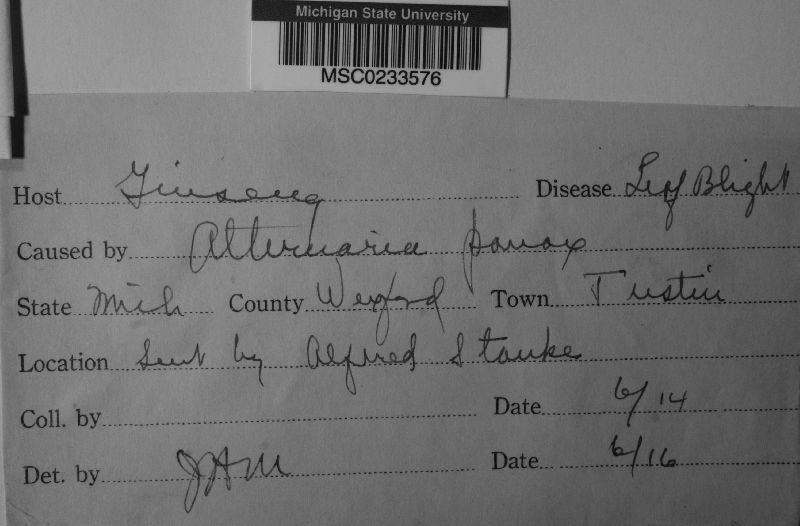 Michigan State University
MSC0233576
Host Ginseng Disease Leaf Blight
Caused by Alternaria panax
State Mich County Wexford Town Tustin
Location Sent by Alfred Stanke
Coll. by Date 6/14
Det. by JHM Date 6/16